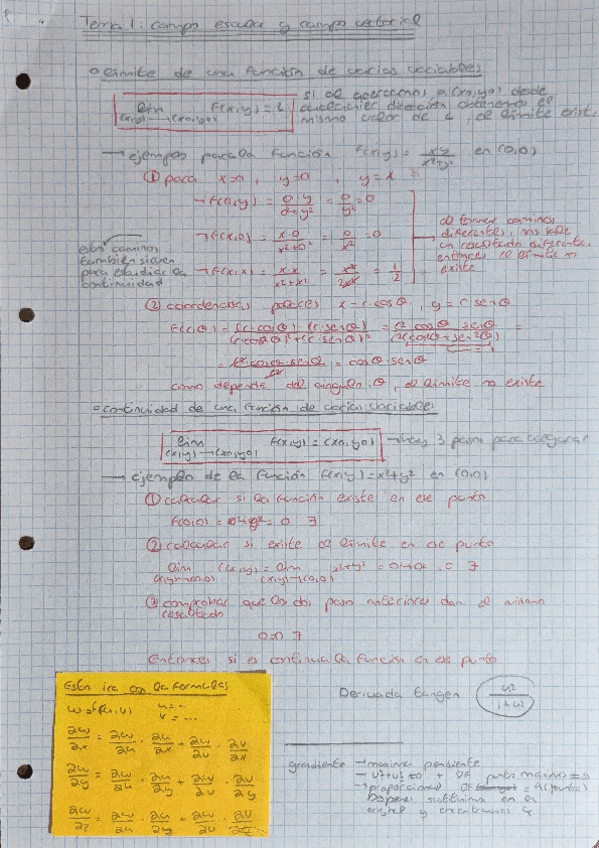 Tema 1: campo escalar y campo vectorial
o límite de una función de varias variables
lim F(x,y) = L
(x,y)→(x0,y0)
si al acercarnos a (x0,y0) desde
cualquier dirección obtenemos el
mismo valor de L, el límite existe
→ ejemplos para la función F(x,y) = xy / x²+y² en (0,0)
① para x=0, y=0, y=x
→ F(0,y) = 0·y / 0²+y² = 0 / y² = 0
→ F(x,0) = x·0 / x²+0² = 0 / x² = 0
→ F(x,x) = x·x / x²+x² = x² / 2x² = 1/2
estos caminos
también sirven
para estudiar la
continuidad
al tomar caminos
diferentes, nos sale
un resultado diferente,
entonces el límite no
existe
② coordenadas polares x = r·cosθ, y = r senθ
F(r,θ) = (r·cosθ)·(r·senθ) / (r·cosθ)²+(r·senθ)² = r² cosθ·senθ / r²(cos²θ+sen²θ) =
= r² cosθ·senθ / r² = cosθ·senθ
como depende del ángulo θ, el límite no existe
o continuidad de una función de varias variables
lim F(x,y) = (x0,y0)
(x,y)→(x0,y0)
→ hay 3 pasos para asegurar
→ ejemplo de la función F(x,y)=x²+y² en (0,0)
① calcular si la función existe en ese punto
F(0,0) = 0²+0² = 0 ∃
② calcular si existe el límite en ese punto
lim (x,y) = lim x²+y² = 0+0 = 0 ∃
(x,y)→(0,0) (x,y)→(0,0)
③ comprobar que los dos pasos anteriores dan el mismo
resultado
0=0 ∃
Entonces si es continua la función en ese punto
Esto ira en la formulas
w=f(u,v) u=..
v=...
∂w/∂x = ∂w/∂u · ∂u/∂x + ∂w/∂v · ∂v/∂x
∂w/∂y = ∂w/∂u · ∂u/∂y + ∂w/∂v · ∂v/∂y
∂w/∂z = ∂w/∂u · ∂u/∂z + ∂w/∂v · ∂v/∂z
Derivada tangen u² / 1+u²
gradiente → maxima pendiente
→ proporcional
sustituimos en la
original y encontramos